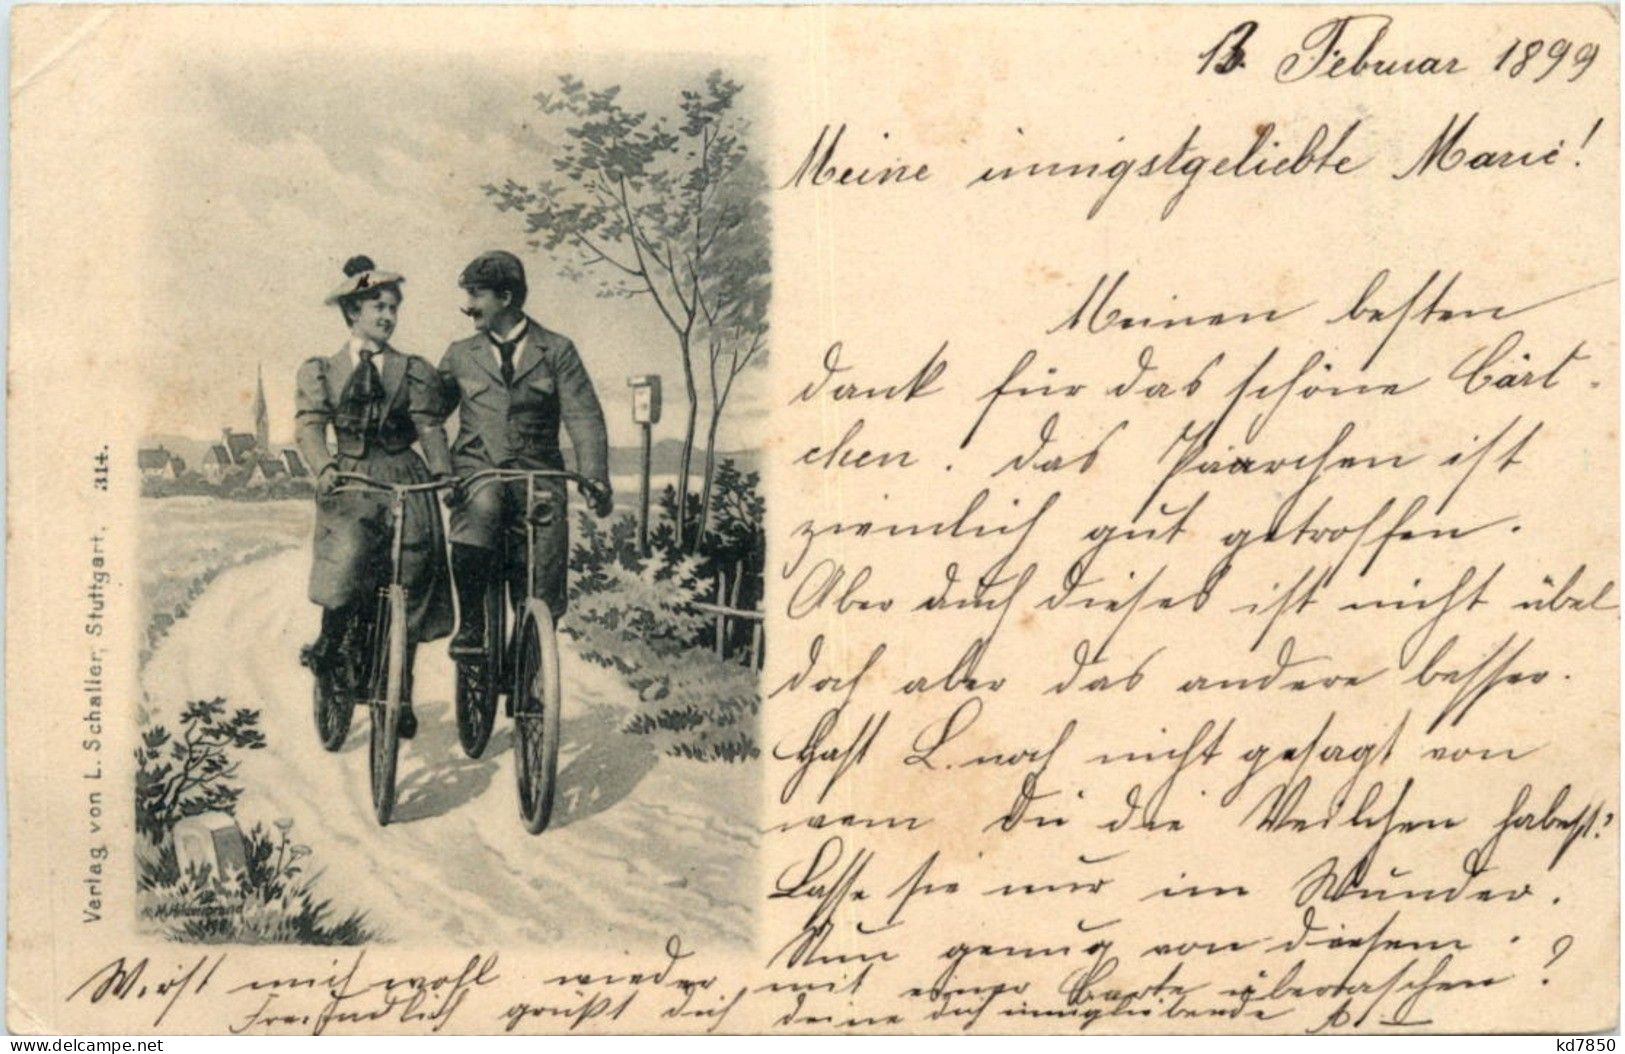 13. Februar 1899
Meine innigstgeliebte Marie!
Meinen besten
dank für das schöne Cärt-
chen. das Päarchen ist
ziemlich gut getroffen.
Aber auch dieses ist nicht übel
doch aber das andere besser.
Hast L. noch nicht gesagt von
wem Du die Veilchen habest?
Lasse sie nur im Wunder.
Nun genug von diesem.
Wirst mich wohl wieder mit einer Carte überraschen?
Freundlich grüßt dich deine dich innigliebende
Verlag von L. Schaller, Stuttgart. 314.
kd7850